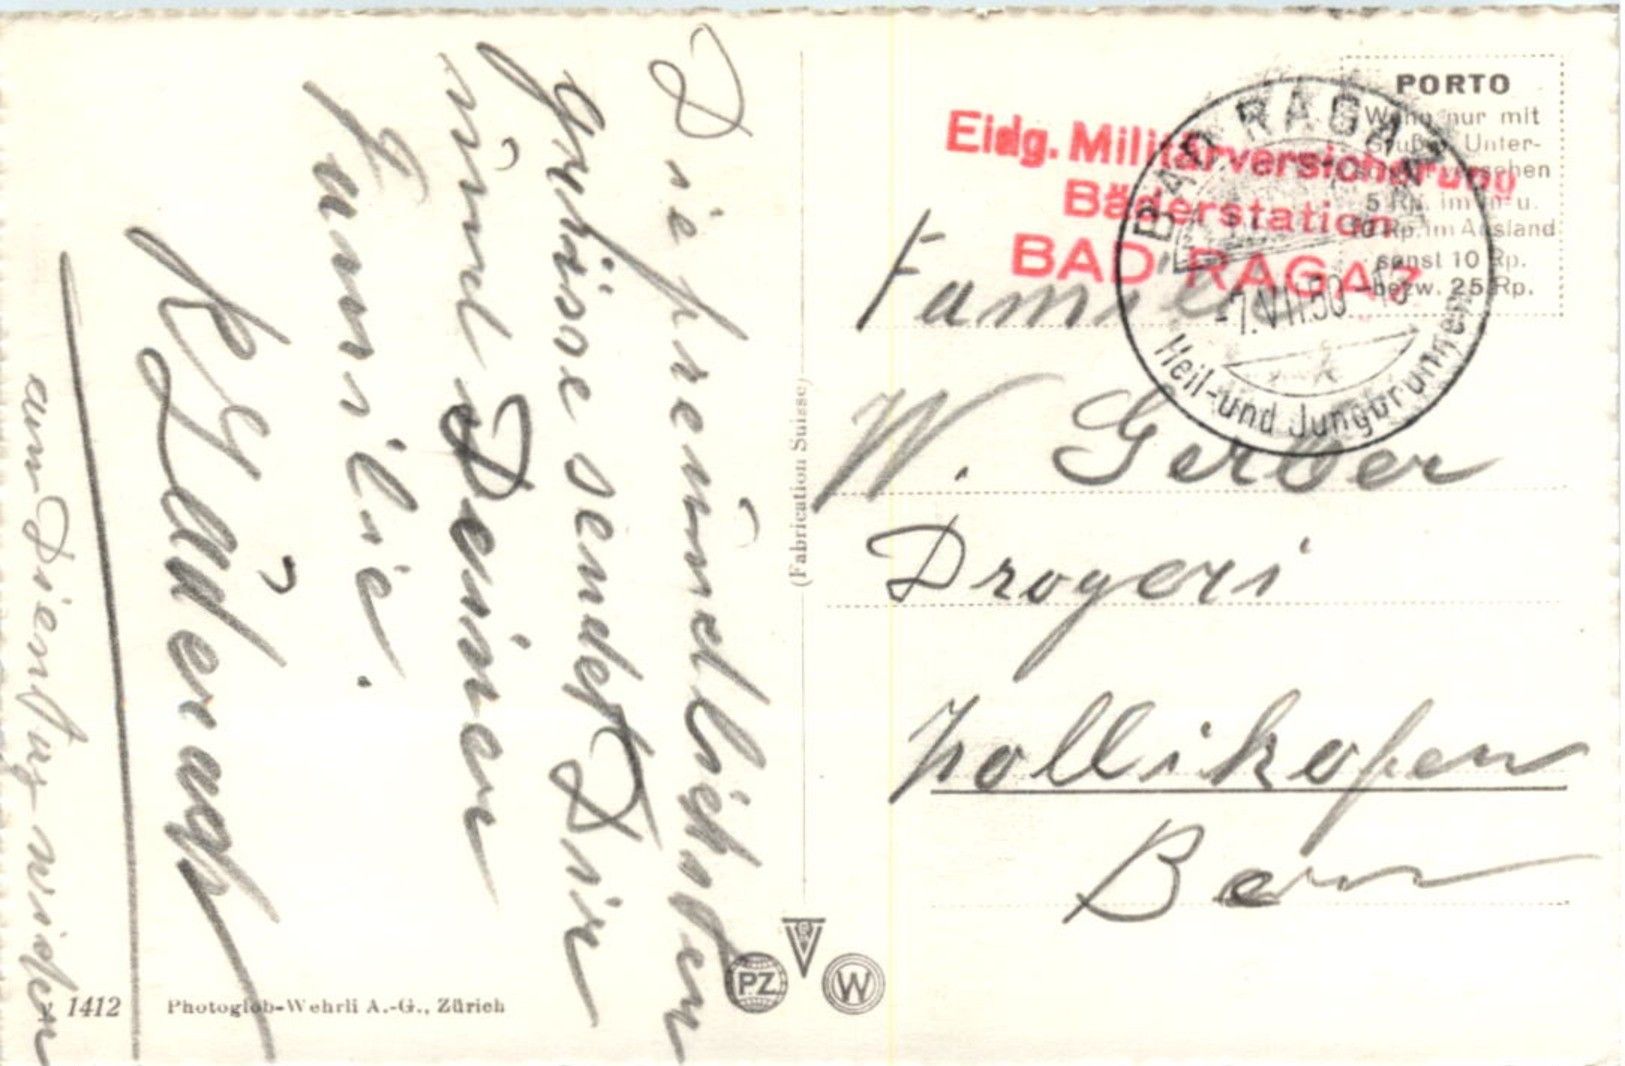 Die freundlichsten
Grüsse sendet Dir
und Deiner
Familie.
am Dienstag
1412
Photoglob-Wehrli A.-G., Zürich
(Fabrication Suisse)
PZ
W
Eidg. Militärversicherung
Bäderstation
BAD RAGAZ
BAD RAGAZ
-7.VII.50
Heil- und Jungbrunnen
PORTO
Wenn nur mit
Gruß u. Unter-
schrift versehen
5 Rp. im In- u.
10 Rp. im Ausland
sonst 10 Rp.
bezw. 25 Rp.
Familie
W. Gerber
Drogeri
Zollikofen
Bern